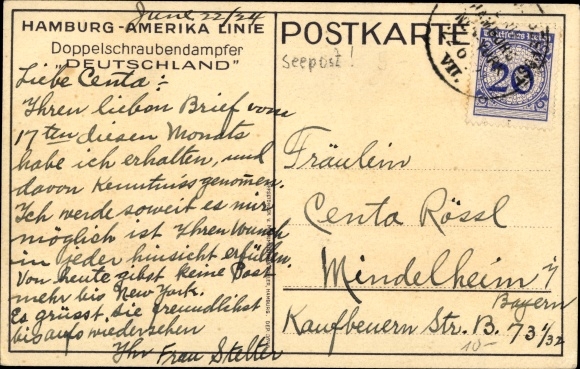 June 22/24
HAMBURG-AMERIKA LINIE
Doppelschraubendampfer
"DEUTSCHLAND"
Liebe Centa:
Ihren lieben Brief vom
17ten diesen Monats
habe ich erhalten, und
davon Kenntniss genommen.
Ich werde soweit es nur
möglich ist Ihren Wunsch
in jeder hinsicht erfüllen.
Von heute gibst keine Post
mehr bis New York.
Es grüsst Sie freundlichst
bis aufs wiedersehen
Ihr Frau Stelter
POSTKARTE
Seepost!
Deutsches Reich
20
VII.
Fräulein
Centa Rössl
Mindelheim i/
Bayern
Kaufbeuern Str. B. 73 1/32
10-